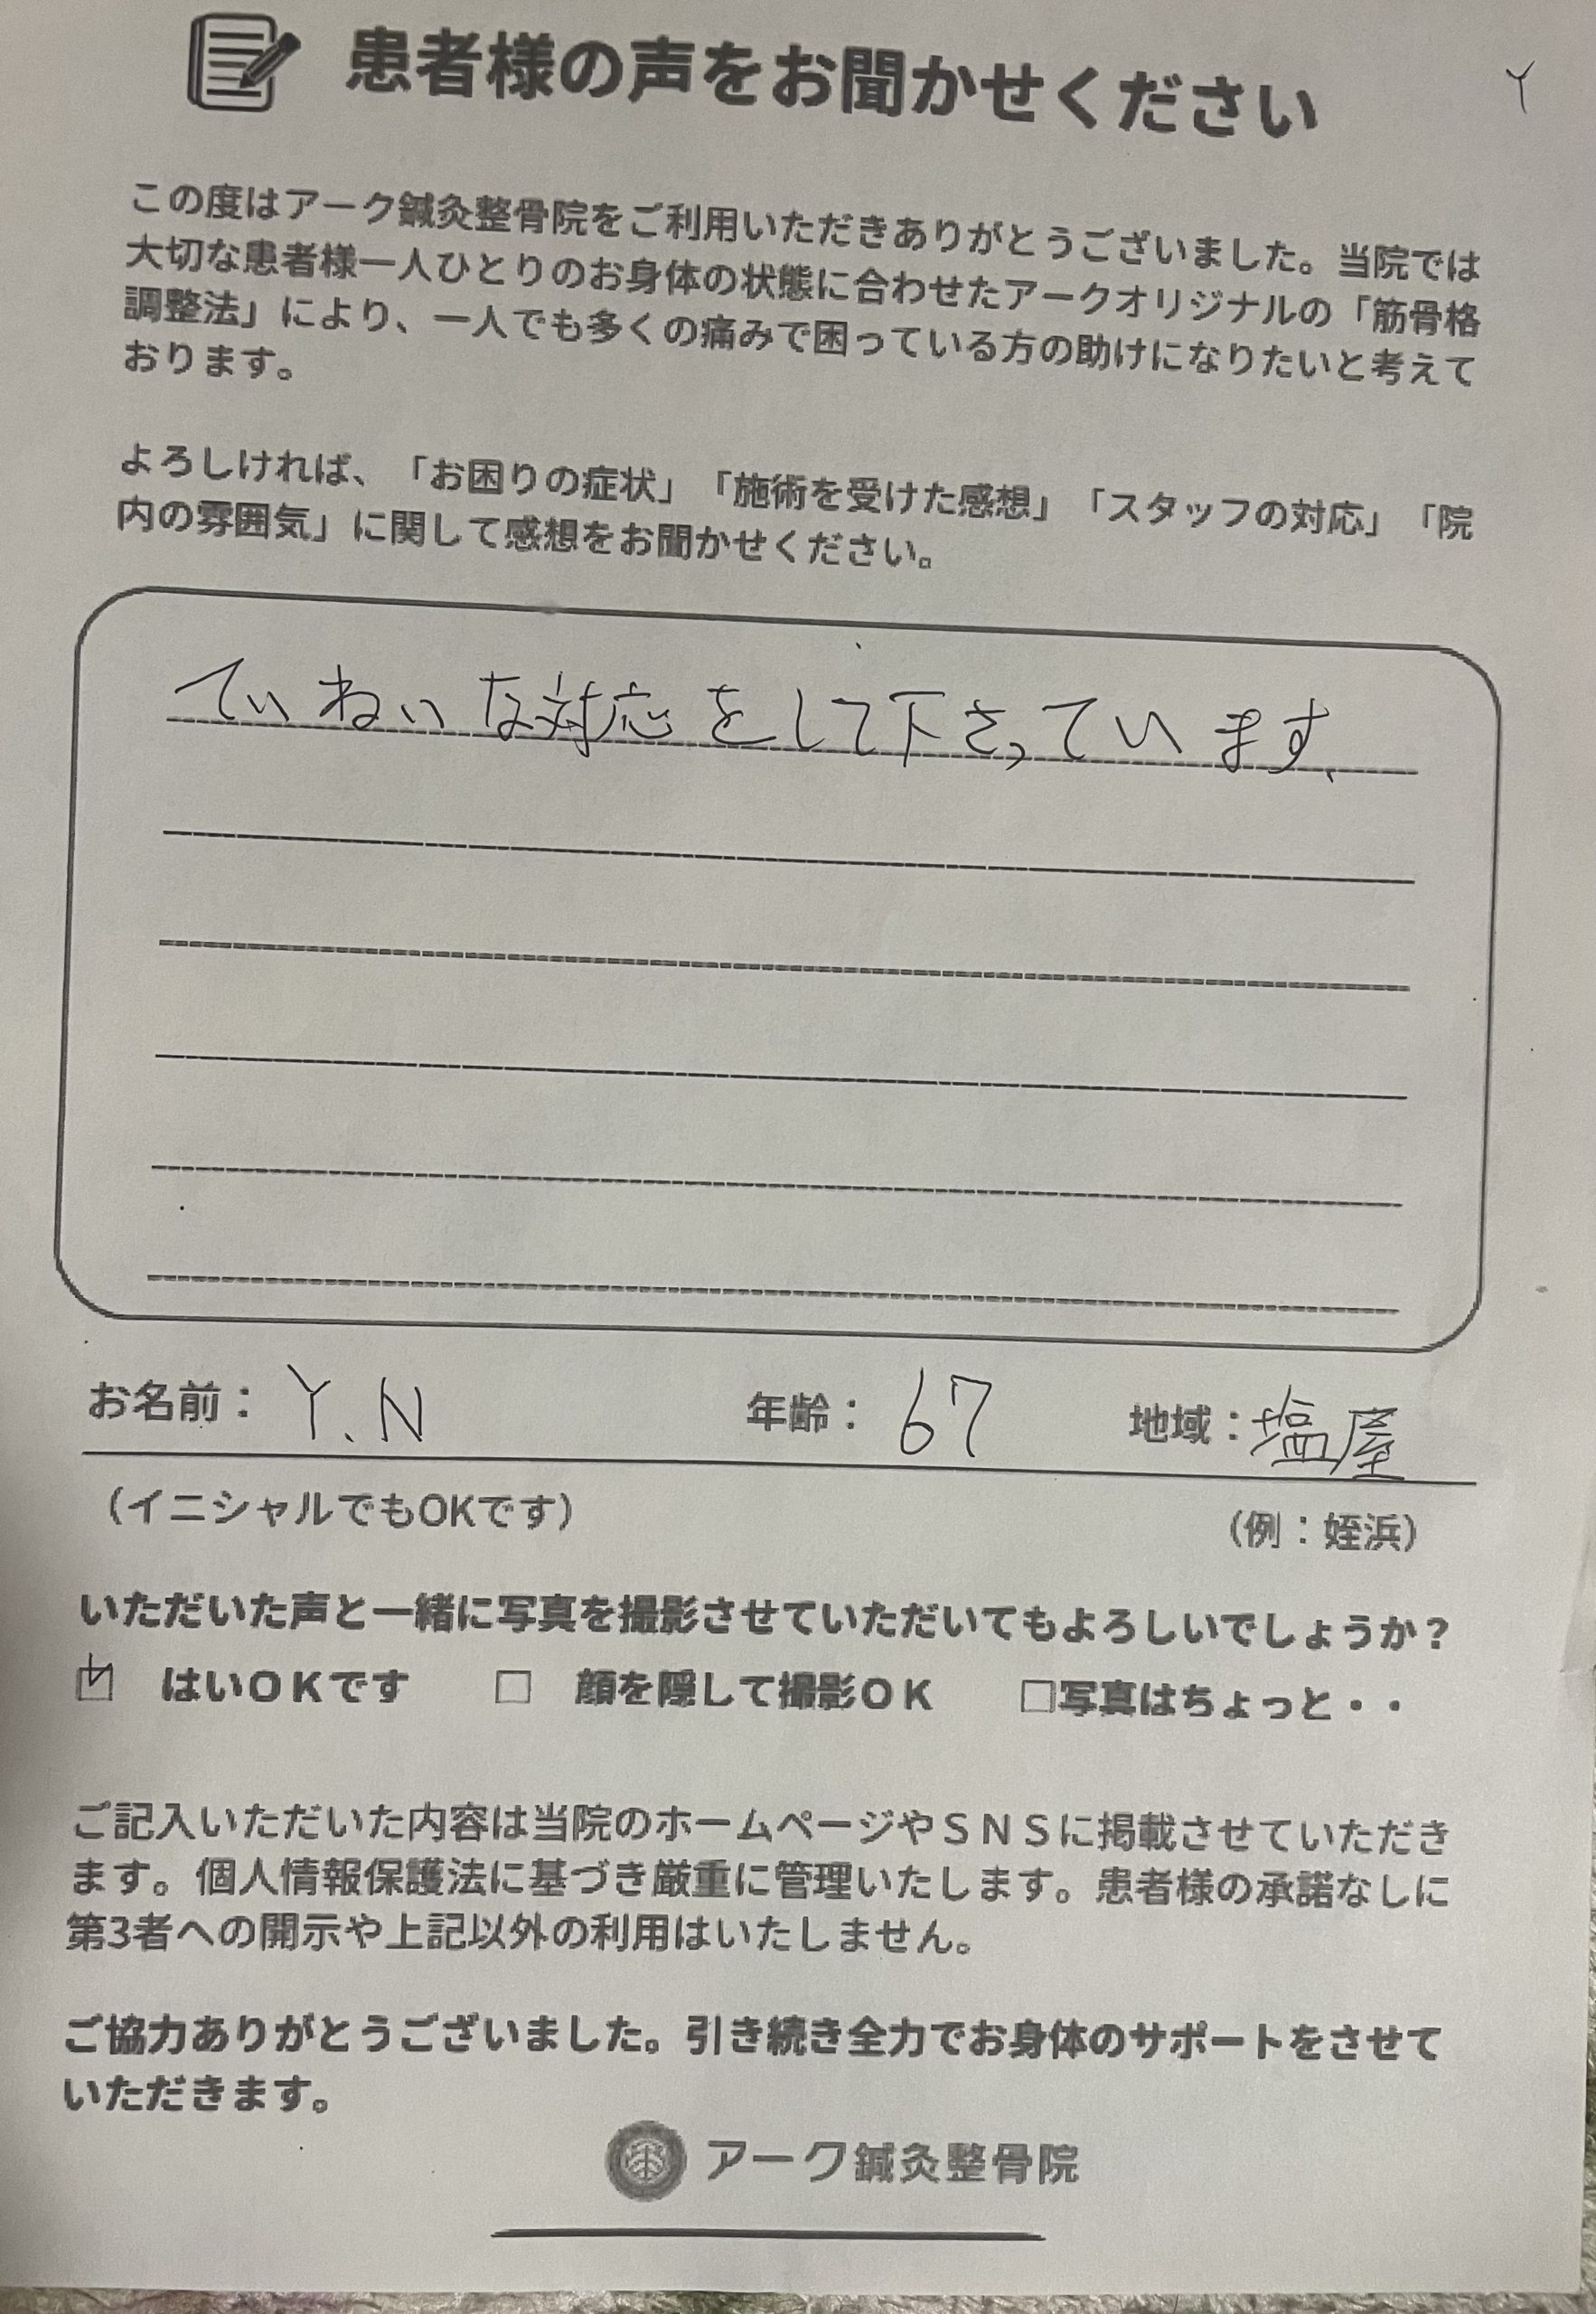 患者様の声をお聞かせください
Y
この度はアーク鍼灸整骨院をご利用いただきありがとうございました。当院では
大切な患者様一人ひとりのお身体の状態に合わせたアークオリジナルの「筋骨格
調整法」により、一人でも多くの痛みで困っている方の助けになりたいと考えて
おります。
よろしければ、「お困りの症状」「施術を受けた感想」「スタッフの対応」「院
内の雰囲気」に関して感想をお聞かせください。
ていねいな対応をして下さっています、
お名前： Y.N 年齢： 67 地域：塩屋
（イニシャルでもOKです） （例：姪浜）
いただいた声と一緒に写真を撮影させていただいてもよろしいでしょうか？
☑ はいＯＫです □ 顔を隠して撮影ＯＫ □写真はちょっと・・
ご記入いただいた内容は当院のホームページやＳＮＳに掲載させていただき
ます。個人情報保護法に基づき厳重に管理いたします。患者様の承諾なしに
第3者への開示や上記以外の利用はいたしません。
ご協力ありがとうございました。引き続き全力でお身体のサポートをさせて
いただきます。
アーク鍼灸整骨院